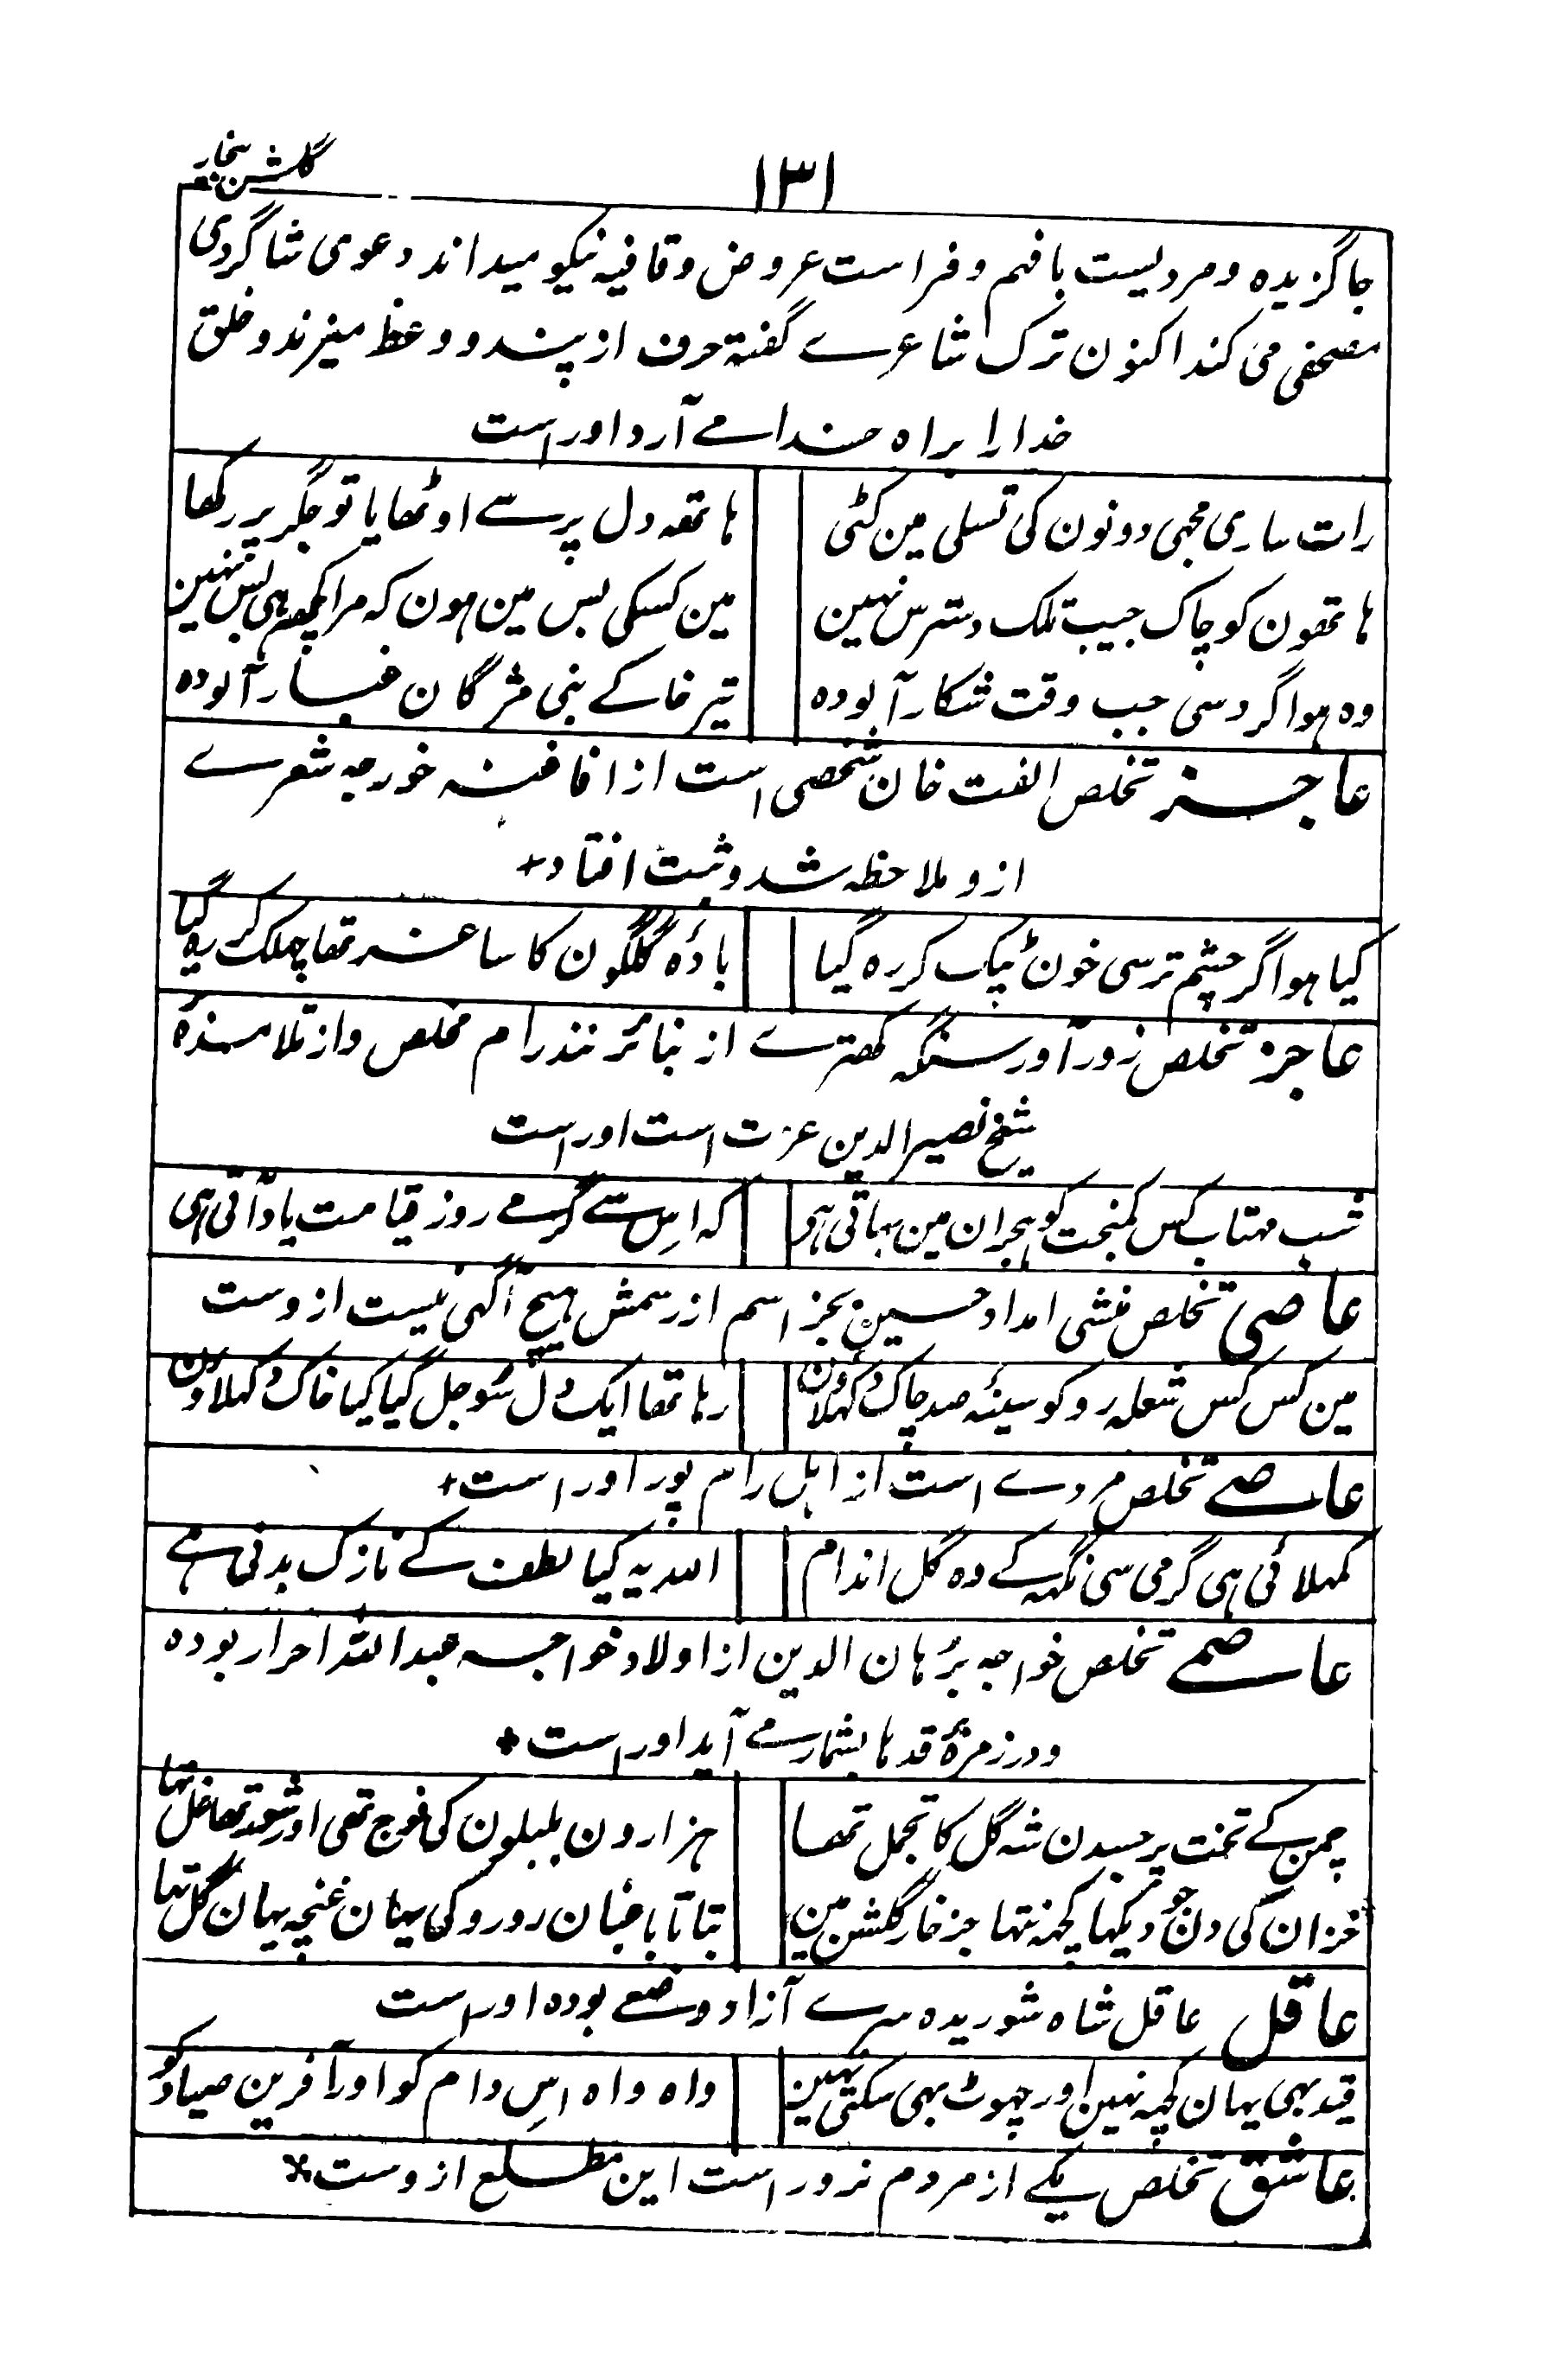 گلشن بیخار
۱۳۱
جاگزیده و مردیست بافهم و فراست عروض و قافیه نیکو میداند دعوی شاگردی
مصحفی می کند اکنون ترک شاعرے گفته حرف از پند و وعظ میزند و خلق
خدا را براه خدامے آرد اوراست
رات ساری مجهی دونون کی تسلی مین کٹی
هاتھه دل پر سے اوٹھایا تو جگر پر رکھا
هاتھون کو چاک جیب تلک دسترس نہین
مین کسکی بس مین ہون کہ مرا کچھ ہی بس نہین
وہ ہوا گرد سی جب وقت شکار آلودہ
تیر خاکے بنی مژگان غبار آلودہ
عاجز تخلص الفت خان شخصی است از افاغنہ خورجہ شعرے
ازو ملاحظہ شد و ثبت افتاد+
کیا ہوا گر چشم تر سی خون ٹپک کر رہ گیا
بادۂ گلگون کا ساغر تھا چھلک کر رہ گیا
عاجز تخلص زور آور سنگہ کھترے از نبائر نندرام مخلص و از تلامذۂ
شیخ نصیر الدین عزت است اوراست
شب مہتاب کس کمبخت کو ہجران مین بہاتی ہی
کہ اس سے گرمے روز قیامت یاد آتی ہی
عاصی تخلص منشی امداد حسین بجز اسم از رسمش ہیچ آگہی نیست ازوست
مین کس کس شعلہ رو کو سینۂ صد چاک دکہلاون
رہا تھا ایک دل سو جل گیا کیا خاک دکہلاون
عاصے تخلص مردے است از اہل رام پور اوراست+
کمہلائی ہی گرمی سی نگہ کے وہ گل اندام
اللہ یہ کیا لطف کے نازک بدنی ہے
عاصمے تخلص خواجہ برہان الدین از اولاد خواجہ عبداللہ احرار بودہ
و در زمرۂ قدما بشمار مے آید اوراست+
چمن کے تخت پر جسدن شہ گل کا تجمل تھا
ہزارون بلبلون کی فوج تھی اور شور تھا غل تہا
خزان کی دن جو دیکہا کچہ نتہا جز خار گلشن مین
بتاتا باغبان رو رو کی یہان غنچہ یہان گل تہا
عاقل عاقل شاہ شوریدہ سرے آزاد وضعے بودہ اوراست
قید بہی یہان کچہ نہین اور چہوٹ بہی سکتی نہین
واہ واہ اس دام کو اور آفرین صیاد کو
عاشق تخلص یکے از مردم نرور است این مطلع ازوست*